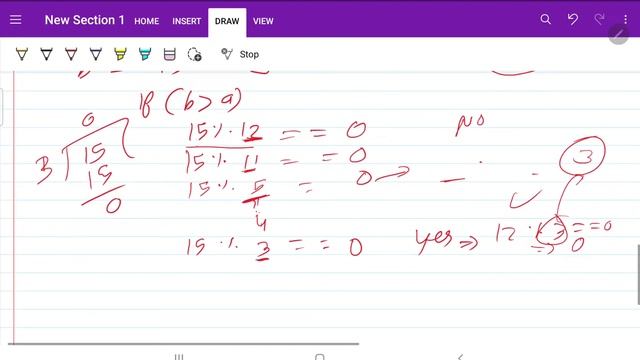 New Section 1 HOME INSERT DRAW VIEW
Stop
if (b > a)
0
15 % 12 == 0 NO
3 15
15 % 11 == 0 3
15
15 % 5 = 0 →
0
4
15 % 3 == 0 yes ⇒ 12 % 3 == 0
0